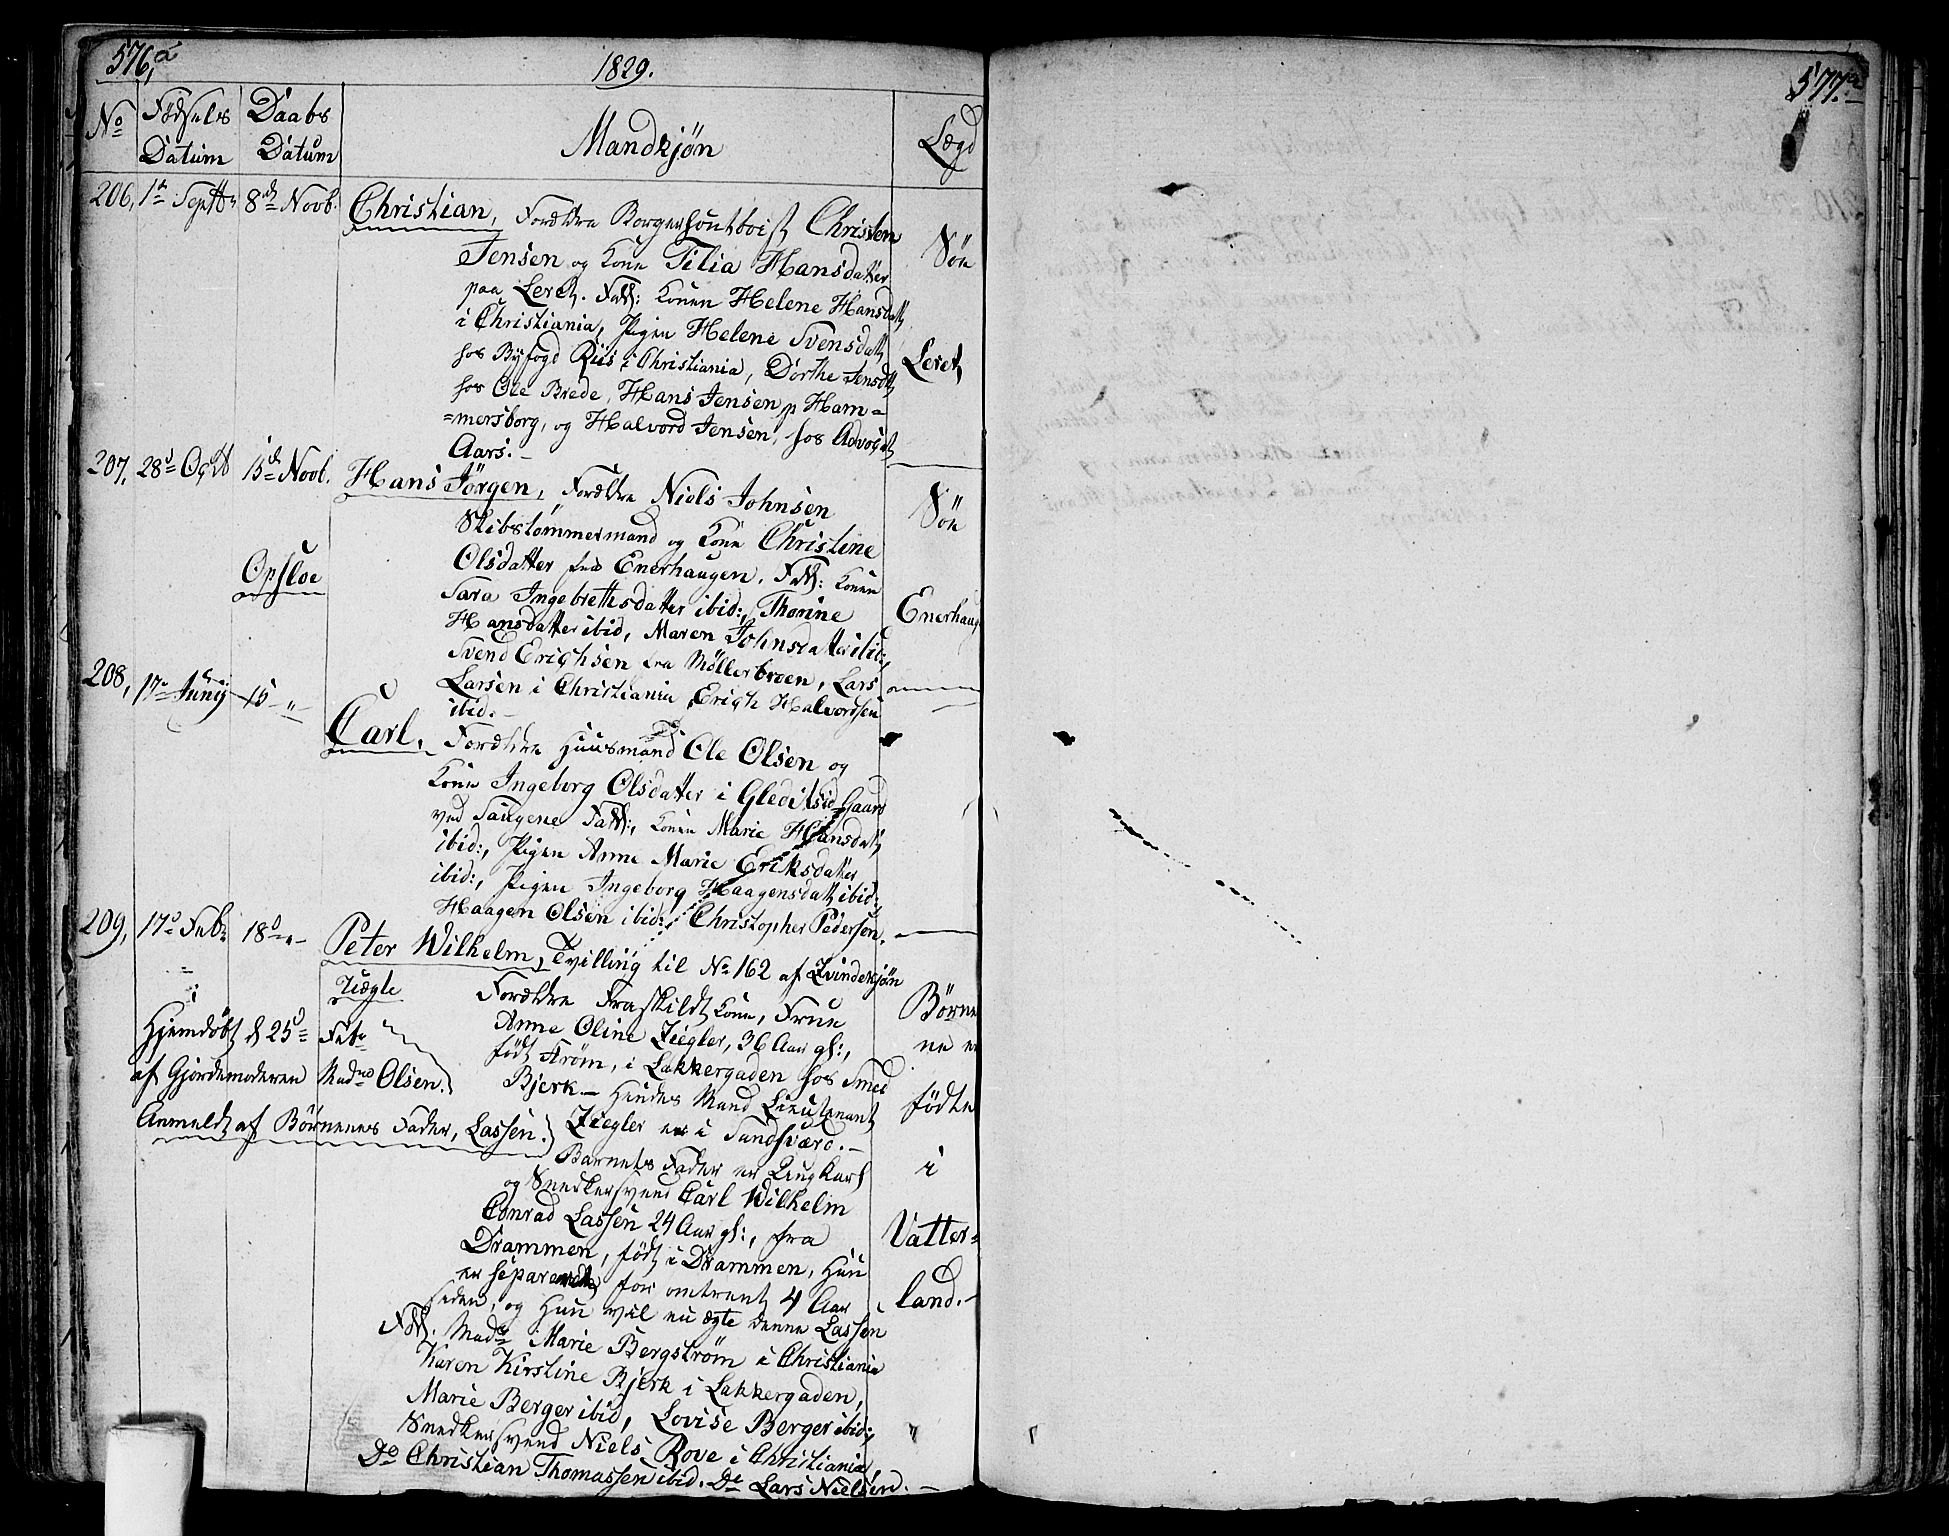 576,a
1829.
No Fødsels Datum Daabs Datum Mandkjøn Lægd
206, 1te Septbr 8de Novb. Christian, Forældre Borgerhoutboist Christen
Jensen og Kone Tilia Hansdatter
paa Leret. Fadd: Konen Helene Hansdatt
i Christiania, Pigen Helene Svensdatt
hos Byfogd Riis i Christiania, Dorthe Jensdtt
hos Ole Brede, Hans Jensen p Ham=
=mersborg, og Halvord Jensen, hos Advocat
Aars.-
Søn
Leret,
207, 28d Octb 15de Novb. Hans Jörgen, Forældre Niels Johnsen
Skibstømmermand og Kone Christine
Olsdatter fra Enerhaugen. Fadd: Konen
Sara Ingebrethsdatter ibid:, Thorine
Hansdatter ibid, Maren Johnsdatter ibid:,
Svend Erichsen fra Møllerbroen, Lars
Larsen i Christiania, Erich Halvorsen
ibid.-
Opsloe
Søn
Enerhaug
208, 17de Junij 15-"-
Carl, Forældre Huusmand Ole Olsen og
Kone Ingeborg Olsdatter i Gleditsch Gaard
ved Saugene Fadd:, Konen Marie Hansdatt,
ibid:, Pigen Anne Marie Eriksdatter
ibid:, Pigen Ingeborg Haagensdatt ibid:
Haagen Olsen ibid:, Christopher Pedersen.
209, 17de Febr 18de"- Peter Wilhelm, Tvilling til No 162 af Qvindekjøn
Uægte Forældre Fraskildt Kone, Frue
Anne Oline Ziegler, 36 Aar gl:,
født Strøm, i Lakkergaden hos Smed
Bjerk- Hendes Mand Lieutenant
Ziegler er i Sandsværd.-
Hjemdøbt d 25de Febr
af Gjordemoderen Madme Olsen.
Anmeldt af Børnenes Fader, Lassen.
Barnets Fader er Ungkarl
og Snedkersvend Carl Wilhelm
Conrad Lassen 24 Aar gl:, fra
Drammen, født i Drammen, Hun
er separeret for omtrent 4 Aar
siden, og Hun vil nu ægte denne Lassen
Fadd. Made Marie Bergstrøm i Christiania
Karen Kirstine Bjerk i Lakkergaden,
Marie Berger ibid, Lovise Berger ibid:,
Snedkersvend Niels Rove i Christiania,
Do Christian Thomassen ibid. Do Lars Nielsen.-
Børne
ne er
fødte
i
Vatter=
land.-
577.a